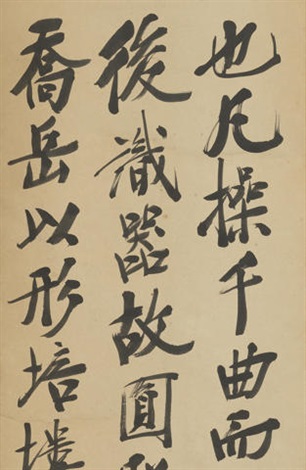 也凡操千曲而
後識器故圓
喬岳以形培塿